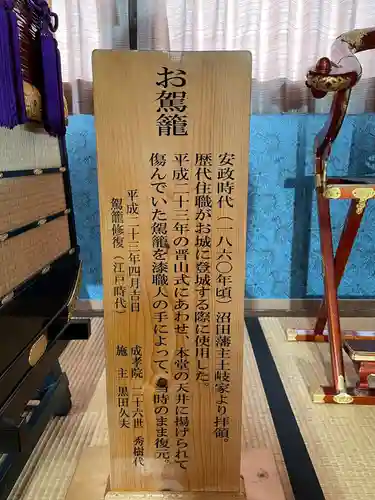 お駕籠
安政時代(一八六〇年頃)沼田藩主土岐家より拝領。
歴代住職がお城に登城する際に使用した。
平成二十三年の晋山式にあわせ、本堂の天井に揚げられて
傷んでいた駕籠を漆職人の手によって、当時のまま復元。
平成二十三年四月吉日
駕籠修復(江戸時代)
成孝院 二十六世 秀樹代
施主 黒田久夫